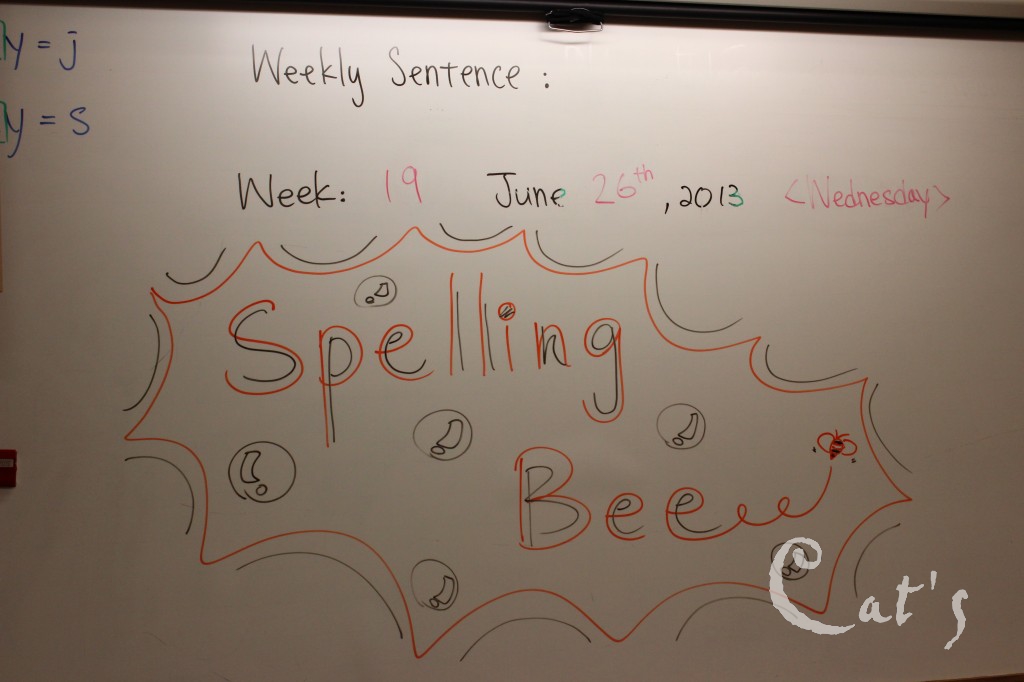 y = j
y = s
Weekly Sentence :
Week: 19 June 26th, 2013 <Wednesday>
Spelling
Bee
Cat's